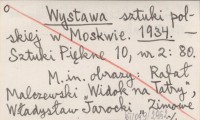 Wystawa sztuki pol-
skiej w Moskwie. 1934. —
Sztuki Piękne 10, nr 2: 80.
M. in. obrazy: Rafał
Malczewski „Widok na Tatry",
Władysław Jarocki „Zimowe